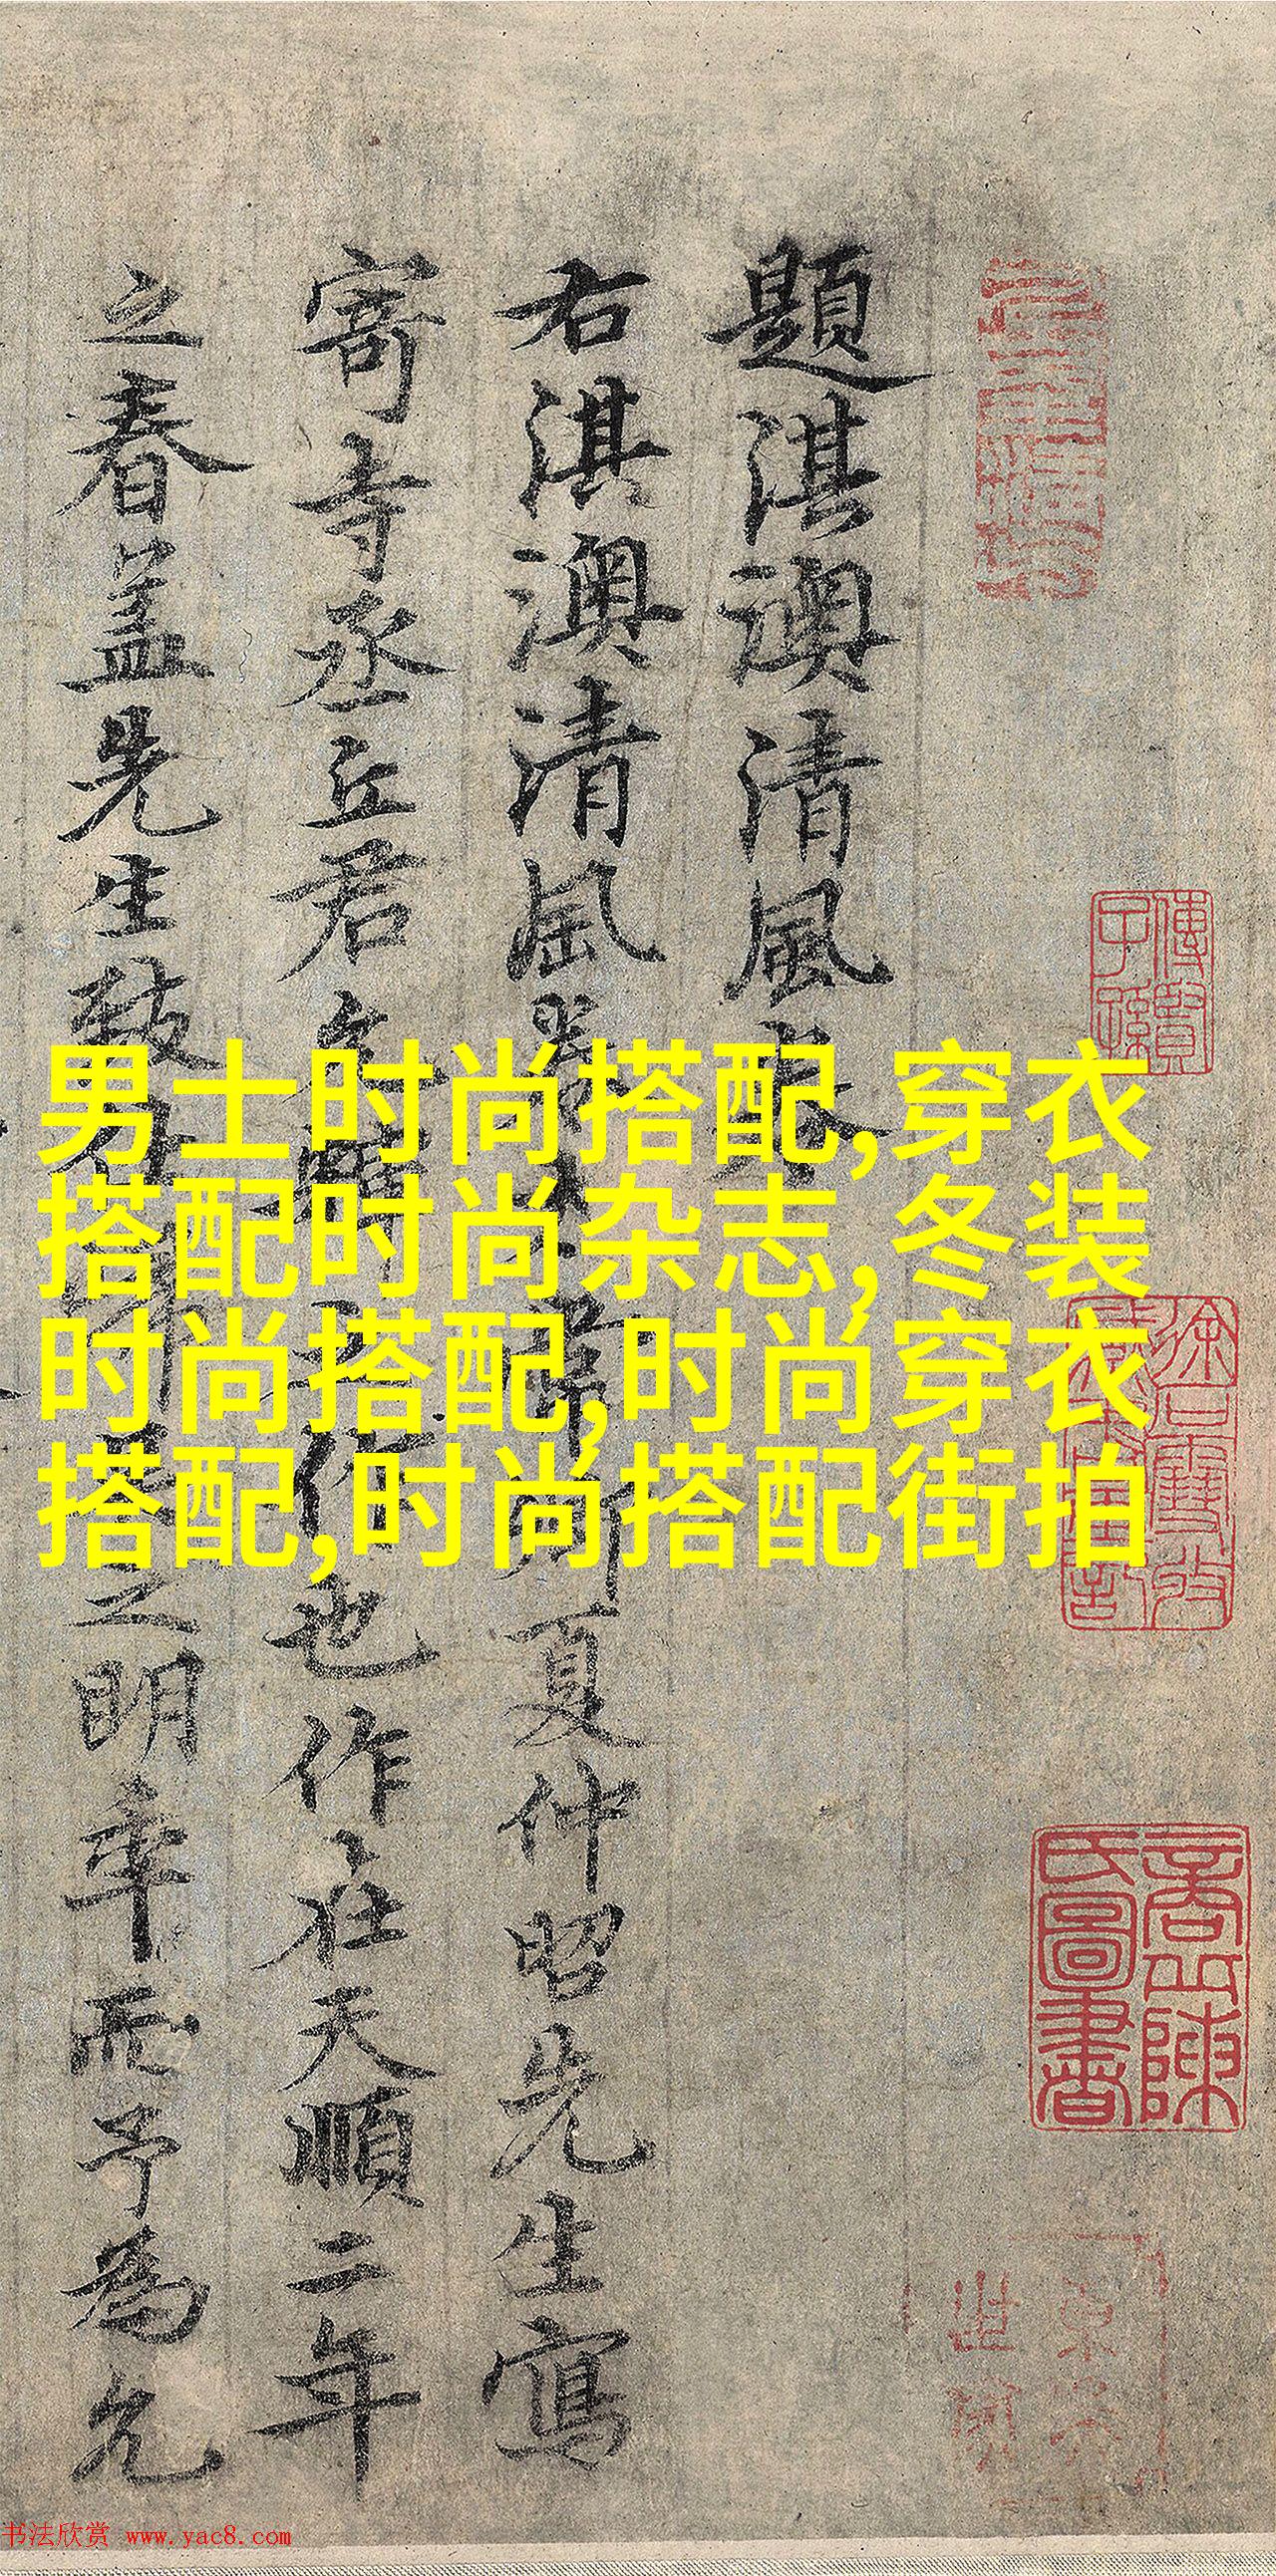 男士时尚搭配,穿衣
搭配时尚杂志,冬装
时尚搭配,时尚穿衣
搭配,时尚搭配街拍
題淇澳清風
右淇澳清風 夏仲昭先生寫
寄寺丞丘君 也作在天順二年
之春蓋先生致 之明年而予為允
傳寶
子孫
氏圖書
书法欣赏 www.yac8.com